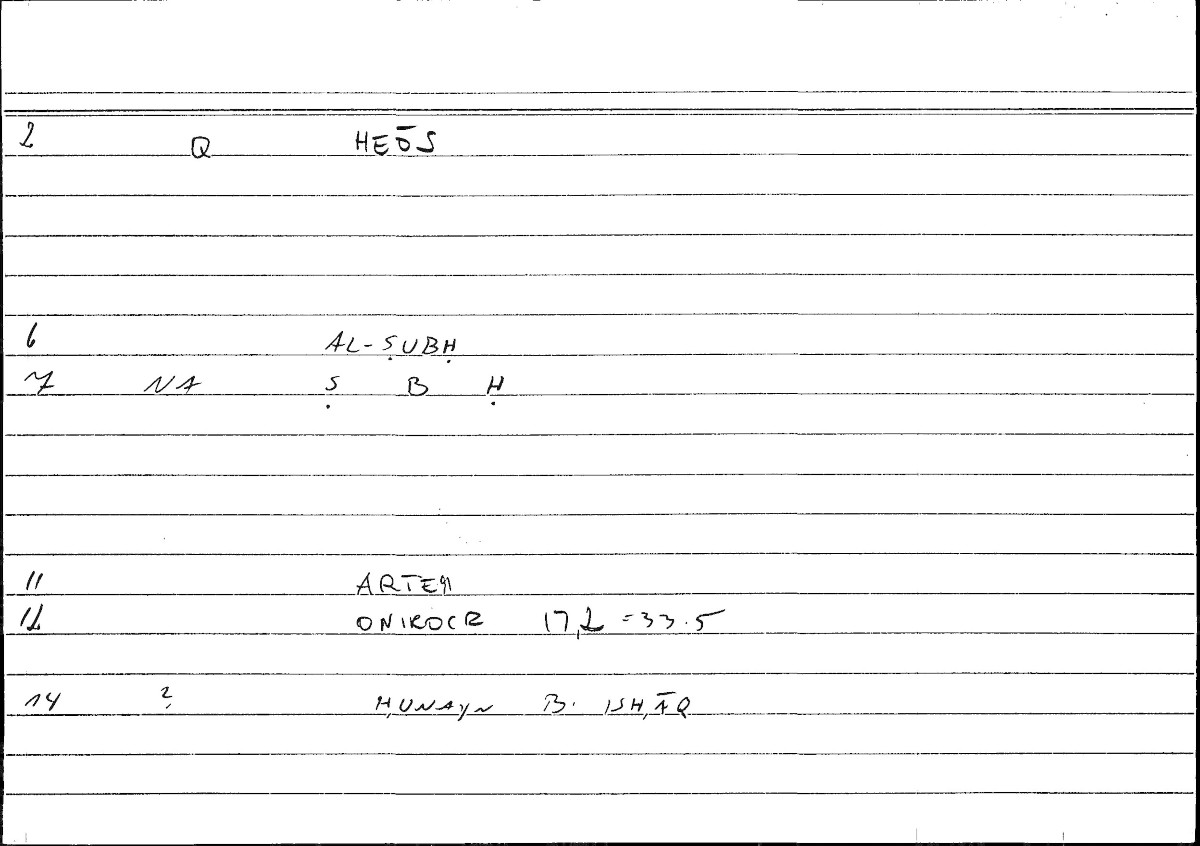 2 Q HEŌS
6 AL-ṢUBḤ
7 NA Ṣ B Ḥ
11 ARTEM
12 ONIROCR 17,2 =33.5
14 ? ḤUNAYN B. ISḤĀQ